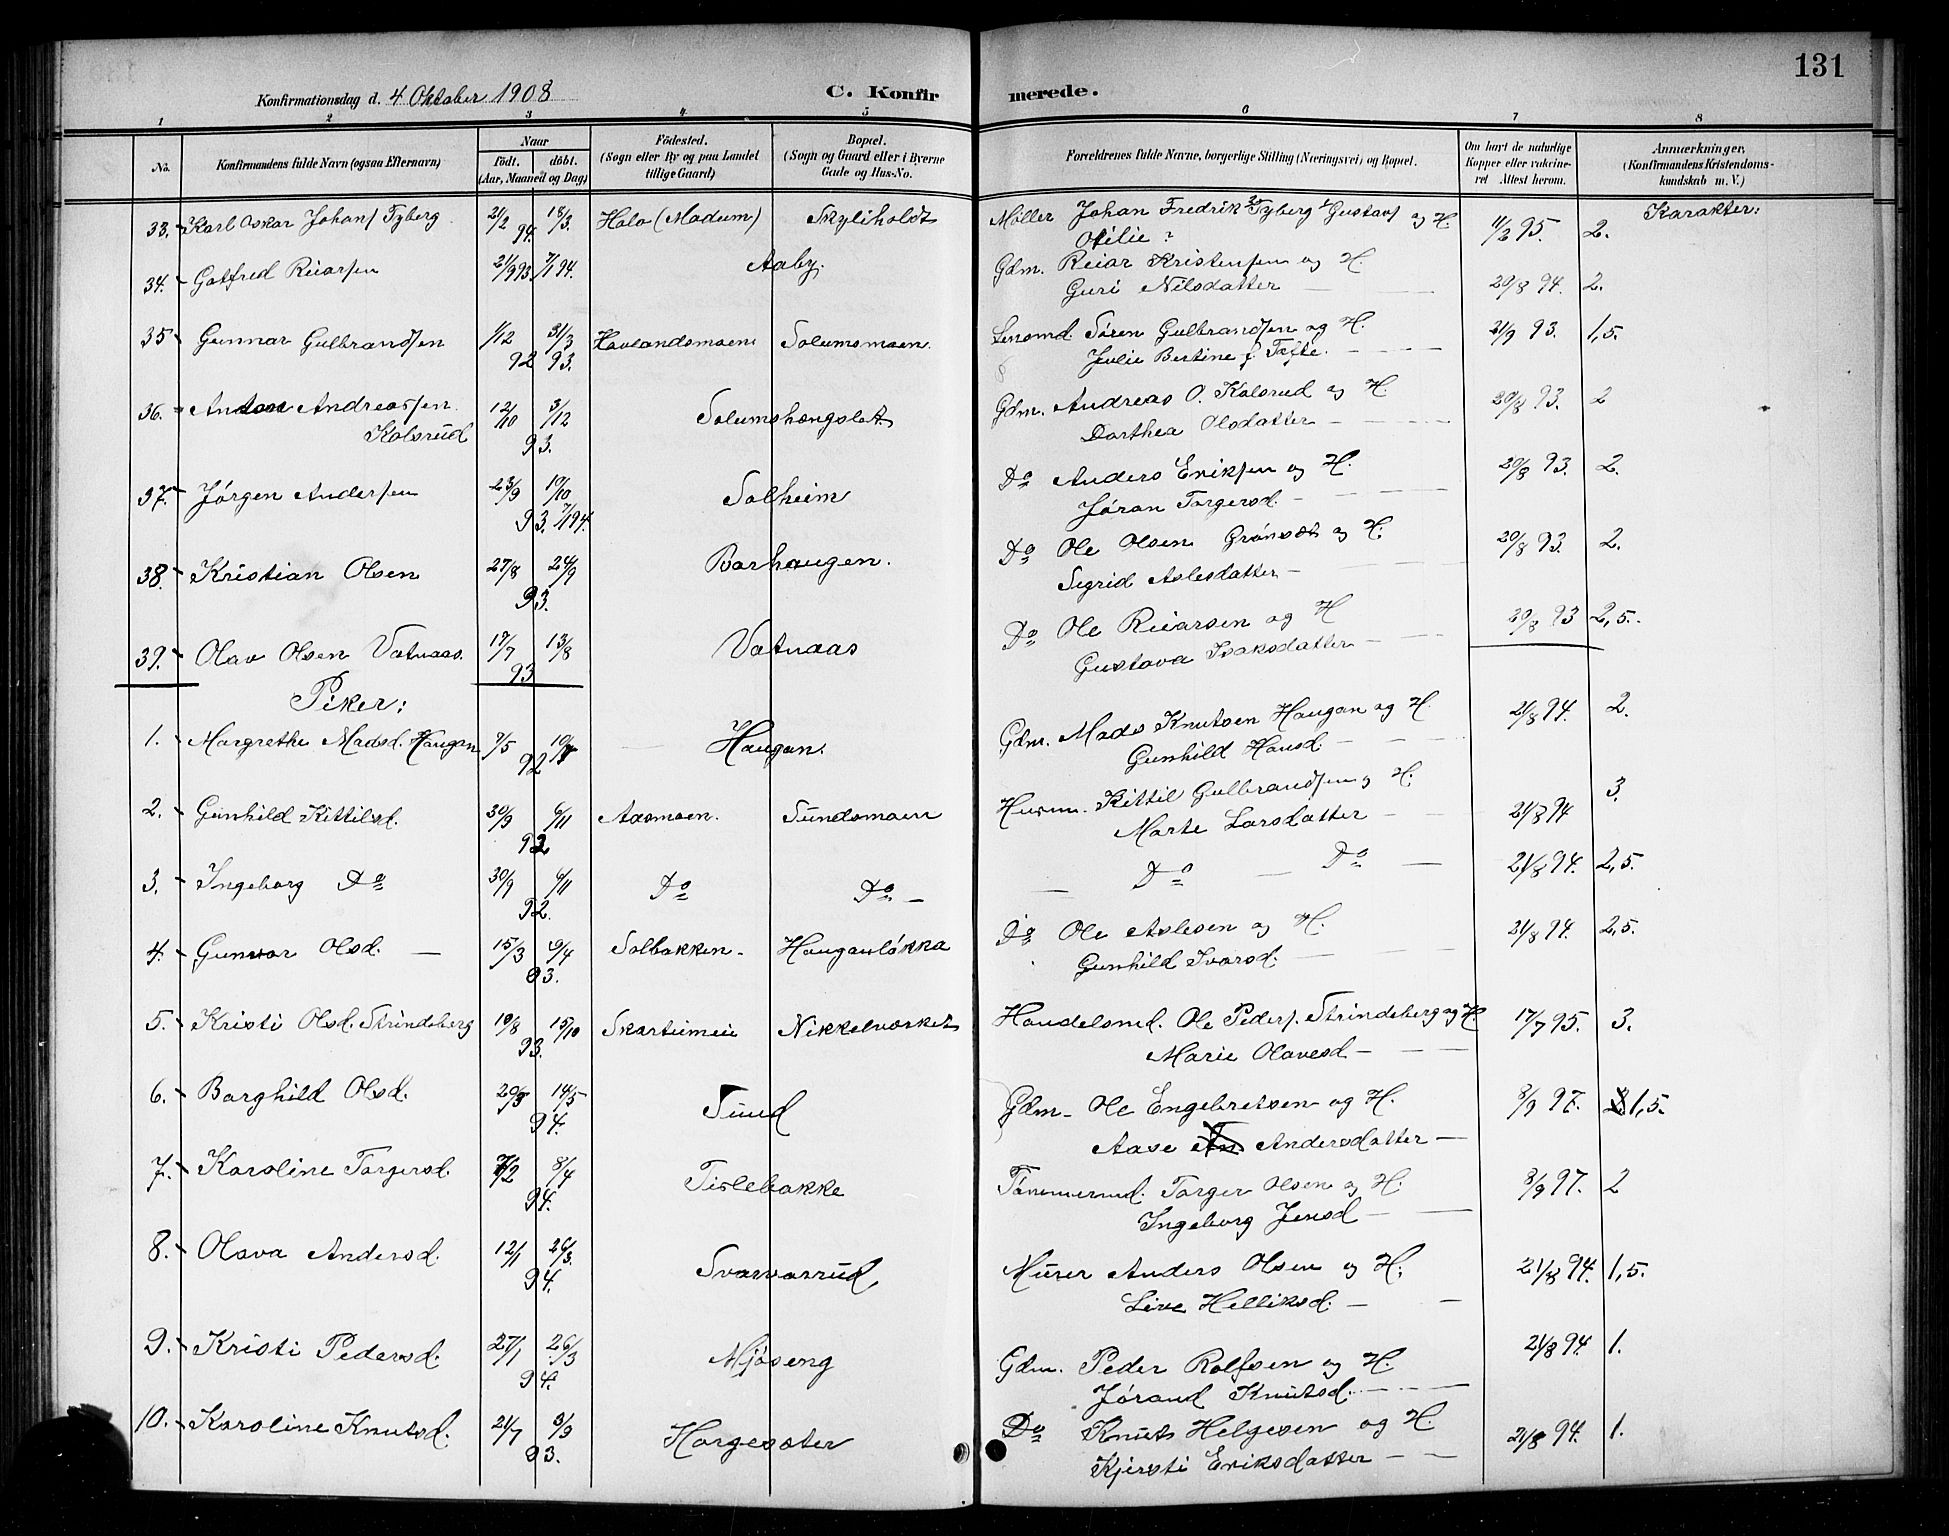 131
Konfirmationsdag d. 4 Oktober 1908 C. Konfirmerede.
1 2 3 4 5 6 7 8
No. Konfirmandens fulde Navn (ogsaa Efternavn) Naar födt. döbt. (Aar, Maaned og Dag) Födested. (Sogn eller By og paa Landet tillige Gaard) Bopæl. (Sogn og Gaard eller i Byerne Gade og Hus-No. Forældrenes fulde Navne, borgerlige Stilling (Næringsvei) og Bopæl. Om havt de naturlige Kopper eller vakcineret Attest herom. Anmærkninger, (Konfirmandens Kristendomskundskab m. V.)
Karakter:
33. Karl Oskar Johans Tyberg 21/2 94. 18/3. Holo (Modum) Skyliholdt Møller Johan Fredrik Tyberg Gustavs og H. 11/2 95. 2.
Otilie ?
34. Gotfred Reiarsen 21/9 93. 7/1 94. Aaby. Gdm. Reiar Kristensen og H. 20/8 94. 2.
Guri Nilsdatter
35 Gunnar Gulbrandsen 1/12 92 31/3 93. Havlandsmoen Solumsmoen. Lensmd. Søren Gulbrandsen og H. 21/9 93. 1,5.
Julie Bertine f Tofte.
36. Anton Andreassen 12/10 3/12 93. Solumshængslet. Gdm. Andreas O. Kolsrud og H 20/8 93. 2
Kolsrud Dorthea Olsdatter
37. Jørgen Andersen 23/9 93. 10/10 7/1 94. Solheim Do Anders Eriksen og H. 20/8 93. 2.
Jøran Torgersd.
38. Kristian Olsen 27/8 24/9 93. Borhaugen. Do Ole Olsen Grønset og H. 20/8 93. 2.
Sigrid Aslesdatter
39. Olav Olsen Vatnaas. 17/7 13/8 93 Vatnaas Do Ole Reiarsen og H 20/8 93 2,5.
Gustava Isaksdatter
Piker:
1. Margrethe Madsd. Haugan 7/5 92 Haugan. Gdm. Mads Knutsen Haugan og H. 21/8 94. 2.
Gunhild Hansd.
2. Gunhild Kittilsd. 30/9 6/11 92 Aasmoen. Sundsmoen Husm. Kittil Gulbrandsen og H. 21/8 94 3.
Marte Larsdatter
3. Ingeborg Do 30/9 6/11 92. Do Do Do Do 21/8 94. 2,5.
4. Gunvor Olsd. 15/3 9/4 93. Solbakken. Hauganløkka Do Ole Aslesen og H. 21/8 94. 2,5.
Gunhild Ivarsd.
5. Kristi Olsd. Strindeberg 10/8 15/10 93. Skartumeie Nikkelverket Handelsmd. Ole Peders. Strindeberg og H. 17/7 95. 3.
Marie Olavesd
6. Borghild Olsd. 20/3 14/5 94. Sund Gdm. Ole Engebretsen og H. 3/9 97. 1,5.
Aase Andersdatter
7. Karoline Torgersd. 7/2 8/4 94. Tislebakke Tømmermd. Torger Olsen og H. 3/9 97. 2
Ingeborg Jensd
8. Olava Andersd. 12/1 26/3. 94. Svarvarrud Murer Anders Olsen og H. 21/8 94. 1,5.
Live Helliksd.
9. Kristi Pedersd. 27/1 26/3 94. Mjøseng Gdm. Peder Rolfsen og H. 21/8 94 1.
Jørand Knutsd.
10. Karoline Knutsd. 21/7 3/9 93. Horgesæter Do Knut Helgesen og H. 21/8 94. 1.
Kjersti Eriksdatter